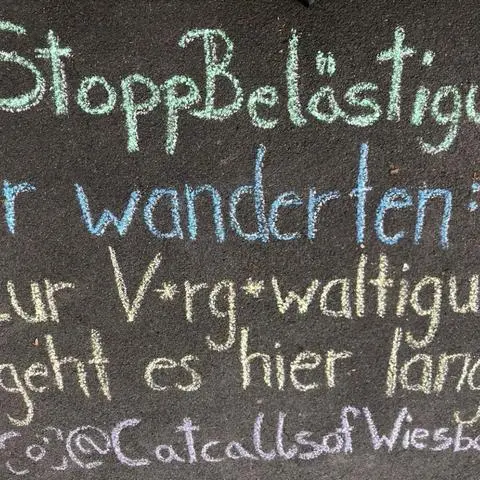 StoppBelästigu
r wanderten:
zur V*rg*waltigu
geht es hier lang
@CatcallsofWiesba